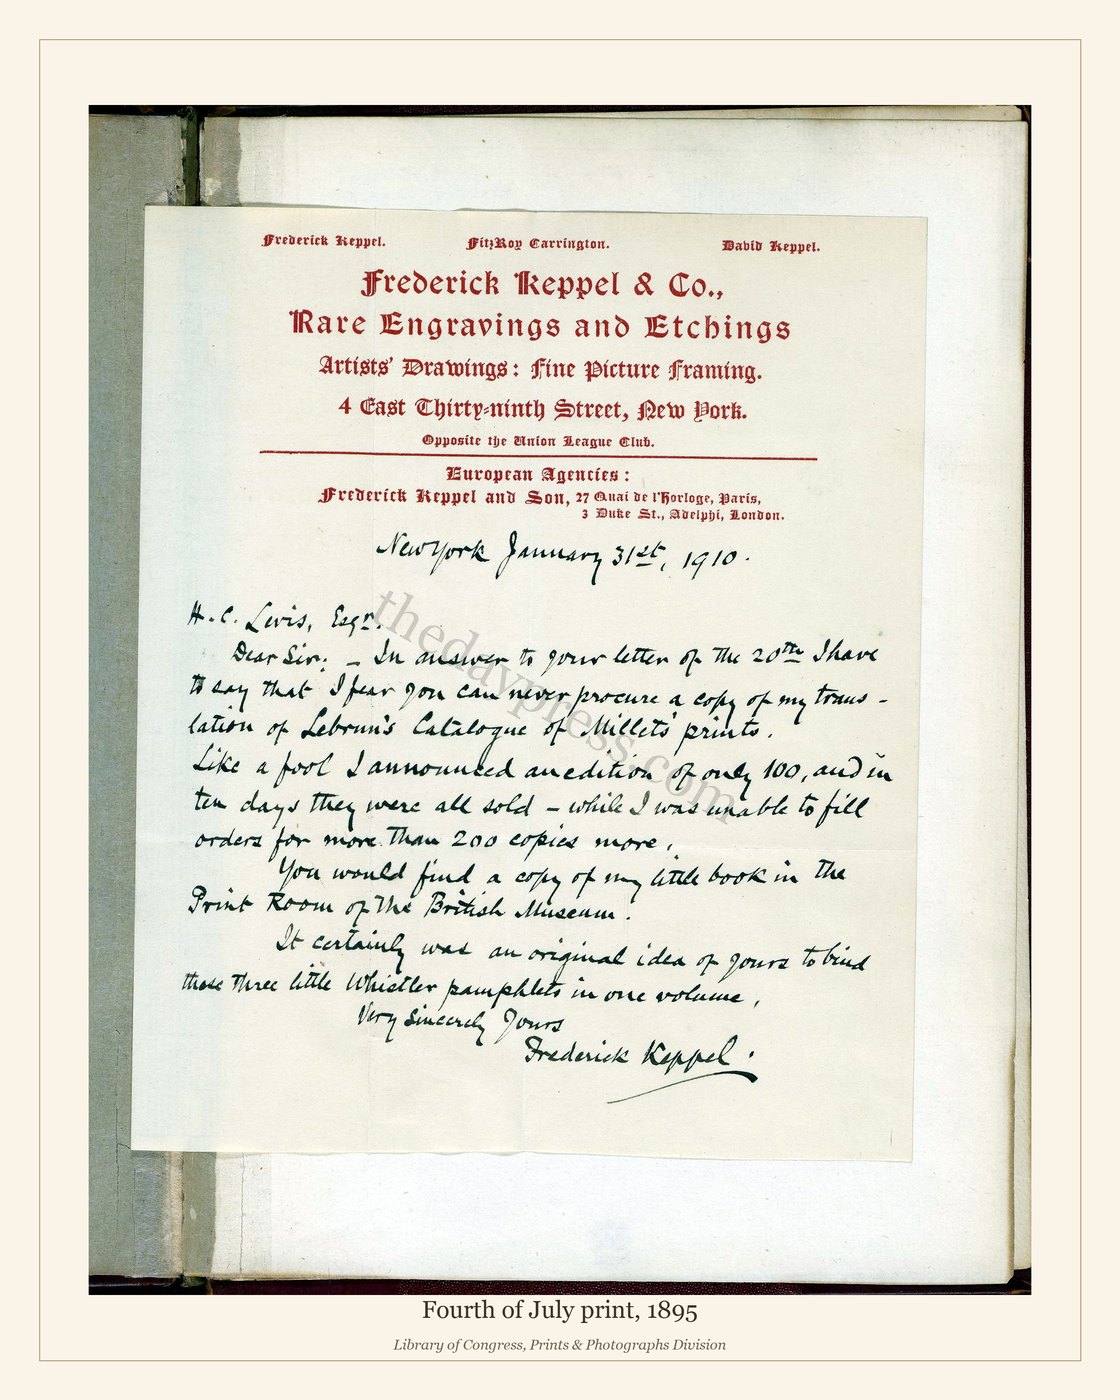 Frederick Keppel. FitzRoy Carrington. David Keppel.
Frederick Keppel & Co.,
Rare Engravings and Etchings
Artists' Drawings: Fine Picture Framing.
4 East Thirty-ninth Street, New York.
Opposite the Union League Club.
European Agencies:
Frederick Keppel and Son, 27 Quai de l'Horloge, Paris,
3 Duke St., Adelphi, London.
New York January 31st, 1910.
H. C. Levis, Esqr.
Dear Sir: – In answer to your letter of the 20th I have
to say that I fear you can never procure a copy of my trans-
lation of Lebrun's Catalogue of Millet's prints.
Like a fool I announced an edition of only 100, and in
ten days they were all sold – while I was unable to fill
orders for more than 200 copies more.
You would find a copy of my little book in the
Print Room of the British Museum.
It certainly was an original idea of yours to bind
those three little Whistler pamphlets in one volume.
Very Sincerely Yours
Frederick Keppel.
thedaypress.com
Fourth of July print, 1895
Library of Congress, Prints & Photographs Division